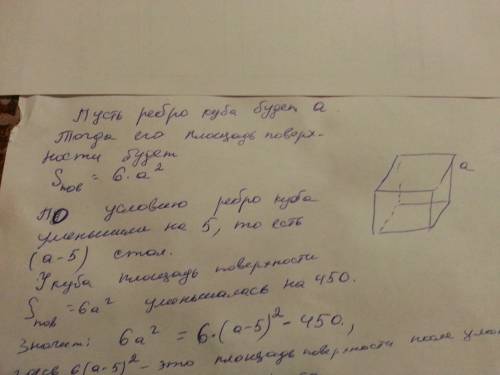 Пусть ребро куба будет a.
Тогда его площадь поверх-
ности будет
Sпов = 6·a²
a
По условию ребро куба
уменьшили на 5, то есть
(a-5) стал.
У куба площадь поверхности
Sпов = 6a² уменьшалась на 450.
Значит: 6a² = 6·(a-5)² - 450.,
6(a-5)² - это площадь поверхности после